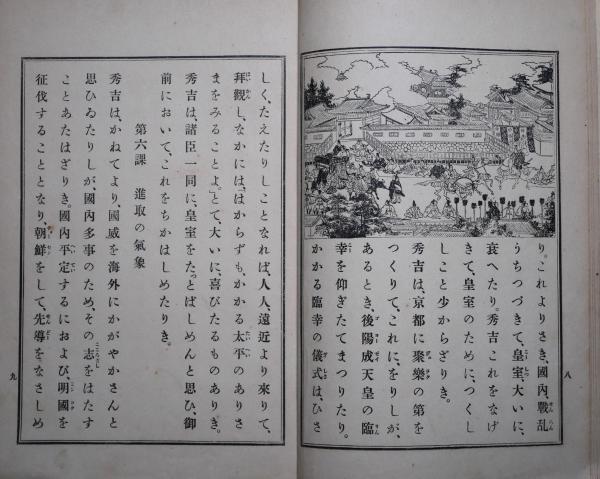 り。これよりさき、國內、戰亂
うちつづきて、皇室、大いに、
衰へたり。秀吉これをなげ
きて、皇室のために、つくし
しこと少からざりき。
秀吉は、京都に聚樂の第を
つくりて、これに、をりしが、
あるとき、後陽成天皇の臨
幸を仰ぎたてまつりたり。
かかる臨幸の儀式は、ひさ
八
しく、たえたりしことなれば、人人、遠近より來りて、
拜觀し、なかには、「はからずも、かかる太平のありさ
まをみることよ」とて、大いに、喜びたるものありき。
秀吉は、諸臣一同に、皇室をたっとばしめんと思ひ、御
前において、これをちかはしめたりき。
第六課 進取の氣象
秀吉は、かねてより、國威を海外にかがやかさんと
思ひゐたりしが、國內多事のため、その志をはたす
ことあたはざりき。國內平定するにおよび、明國を
征伐することとなり、朝鮮をして、先導をなさしめ
九